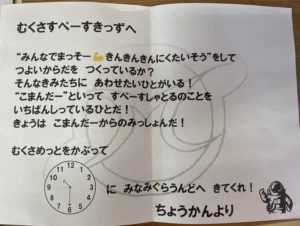 むくさすぺーすきっずへ
“みんなでまっそー💪きんきんきんにくたいそう”をして
つよいからだを つくっているか？
そんなきみたちに あわせたいひとがいる！
“こまんだー”といって すぺーすしゃとるのことを
いちばんしっているひとだ！
きょうは こまんだーからのみっしょんだ！
むくさめっとをかぶって
12
1
2
3
4
5
6
7
8
9
10
11
に みなみぐらうんどへ きてくれ！
ちょうかんより